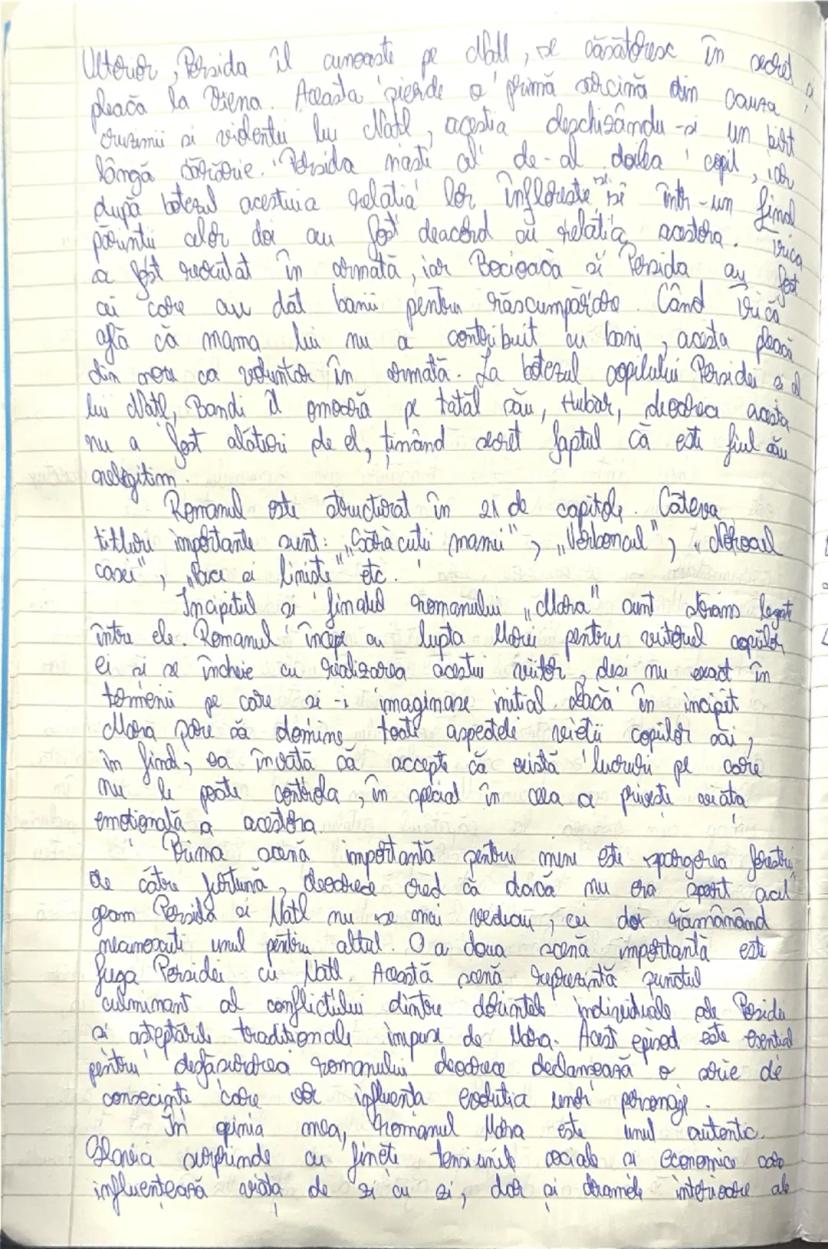 Ulterior, Persida îl cunoaște pe Natl, se căsătoresc în secret și
pleacă la Viena. Aceasta pierde o primă sarcină din cauza
cruzimii și violenții lui Natl, aceștia deschizându-și un birt
lângă Sărărie. Persida naște al de-al doilea copil, iar
după botezul acestuia relația lor înflorește și într-un final
părinții celor doi au fost deacord cu relația acestora. Trica
a fost recrutat în armată, iar Bocioacă și Persida au fost
cei care au dat banii pentru răscumpărare. Când Trică
află că mama lui nu a contribuit cu bani, acesta pleacă
din nou ca voluntar în armată. La botezul copilului Persidei și al
lui Natl, Bandi îl omoară pe tatăl său, Hubăr, deoarece acesta
nu a fost alături de el, ținând secret faptul că este fiul său
nelegitim.
Romanul este structurat în 21 de capitole. Câteva
titluri importante sunt: „Sărăcuții mamei", „Verboncul", „Norocul
casei", „Pace și liniște" etc.
Incipitul și finalul romanului „Mara" sunt strâns legat
între ele. Romanul începe cu lupta Marei pentru viitorul copiilor
ei și se încheie cu realizarea acestui viitor, deși nu exact în
termenii pe care și-i imaginase inițial. Dacă în incipit
Mara pare să domine toate aspectele vieții copiilor săi,
în final, ea învață că accepte că există lucruri pe care
nu le poate controla, în special în ceea ce privește viața
emoțională a acestora.
Prima scenă importantă pentru mine este spargerea ferestrei
de către furtună, deoarece cred că dacă nu era spart acel
geam Persida și Natl nu se mai vedeau, cei doi rămânând
necunoscuți unul pentru altul. O a doua scenă importantă este
fuga Persidei cu Natl. Această scenă reprezintă punctul
culminant al conflictului dintre dorințele individuale ale Persidei
și așteptările tradiționale impuse de Mara. Acest episod este esențial
pentru desfășurarea romanului deoarece declanșează o serie de
consecințe care vor influența evoluția personaje.
În opinia mea, romanul Mara este unul autentic.
Slavici surprinde cu finețe tensiunile sociale și economice care
influențează viața de zi cu zi, dar și dramele interioare ale